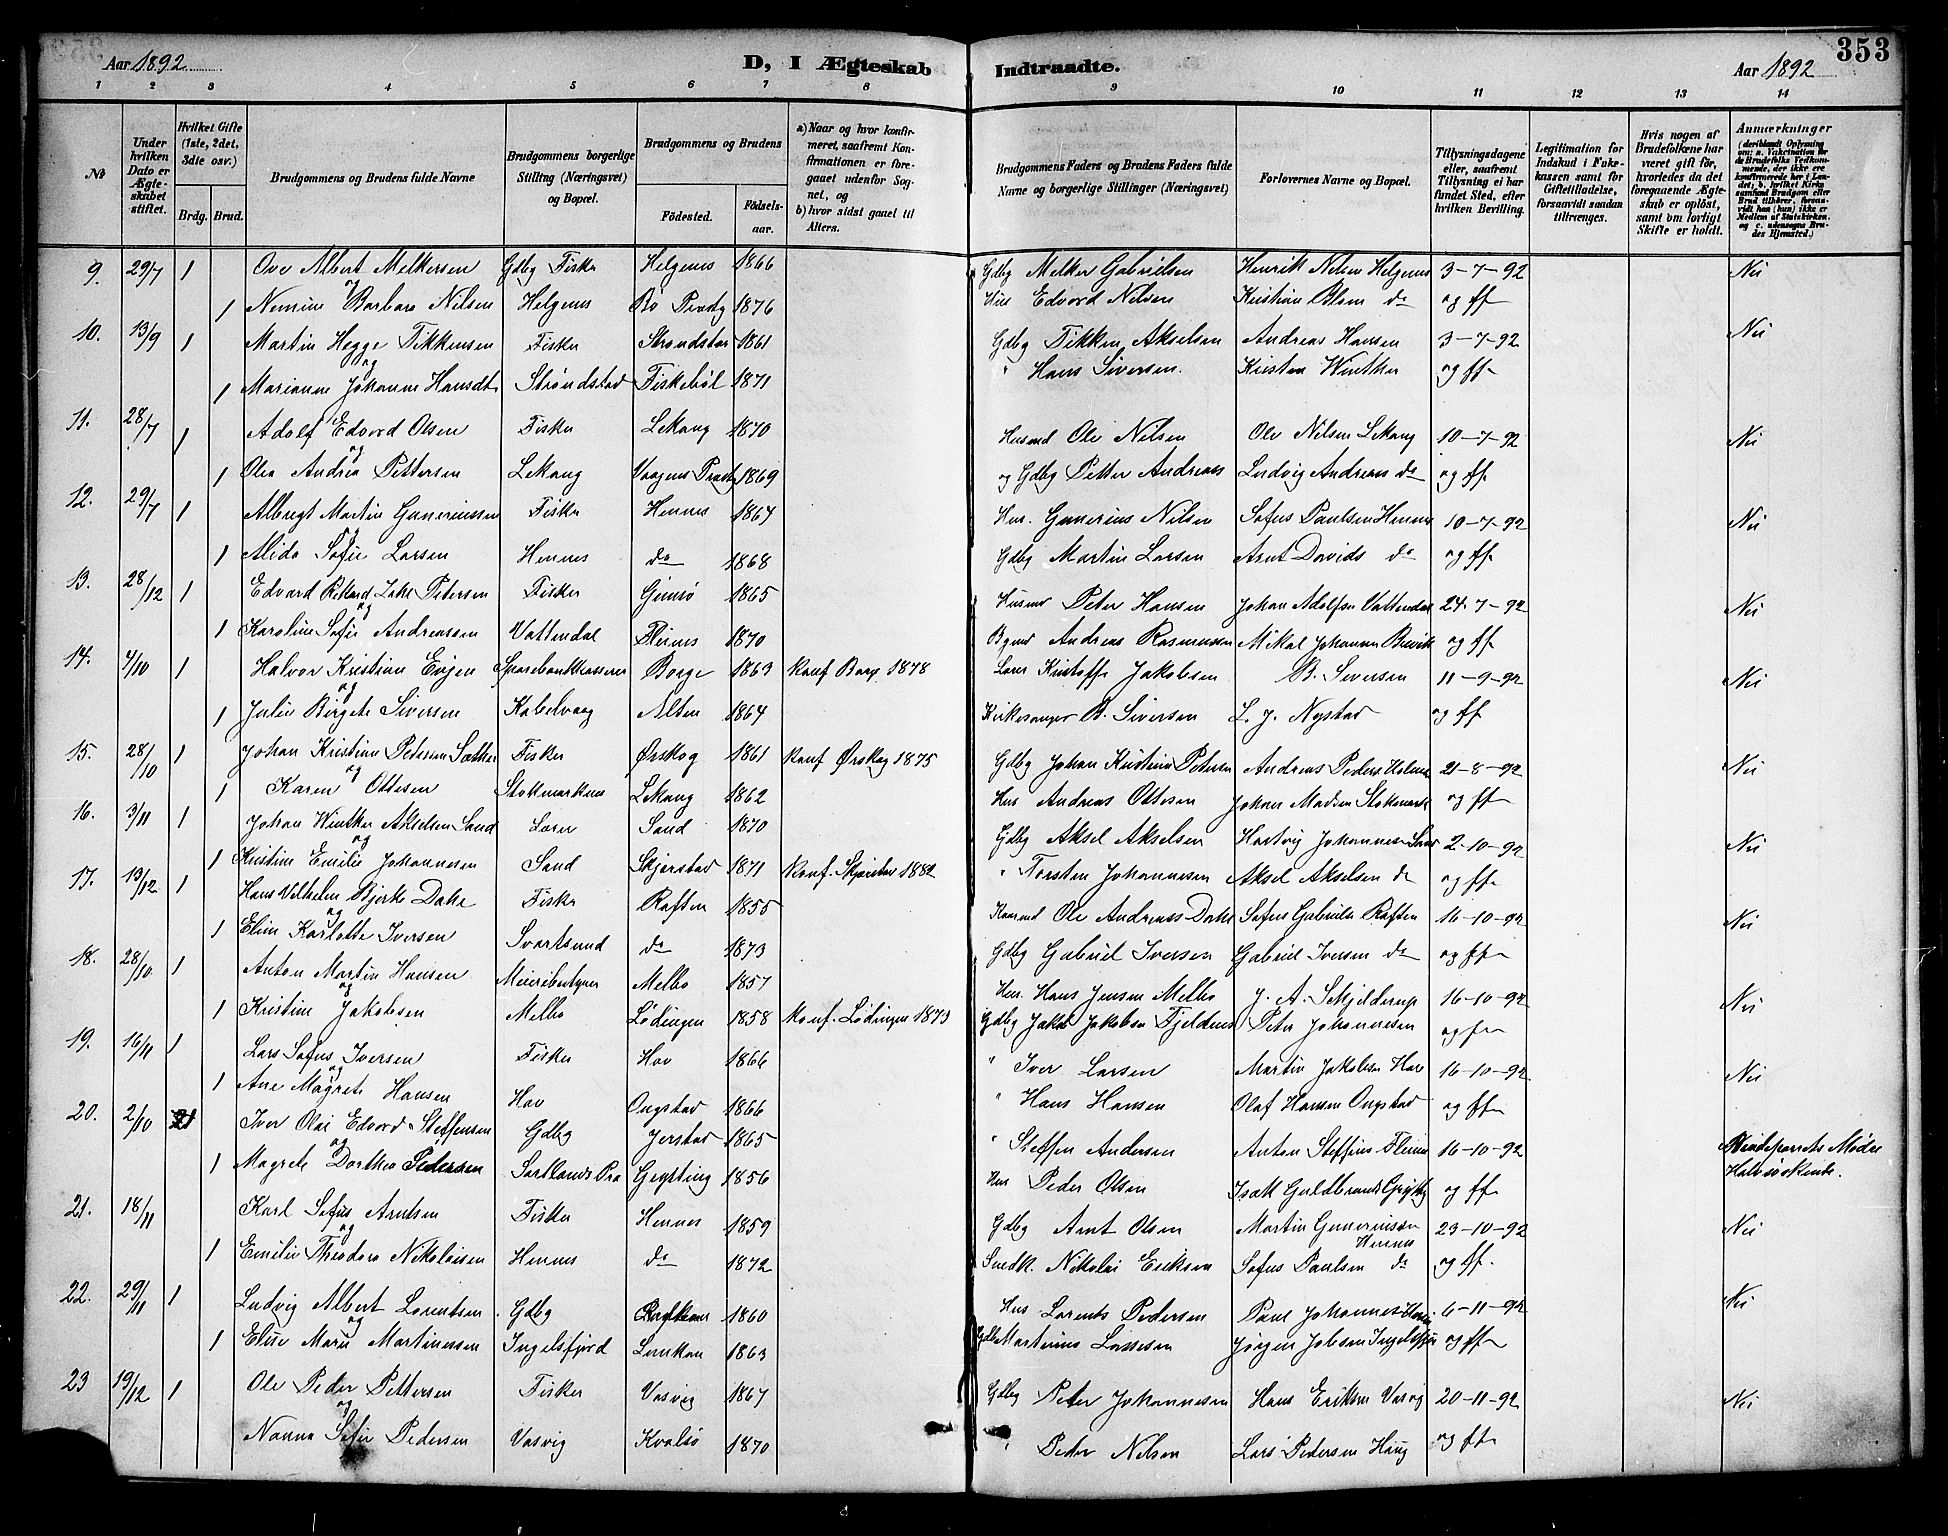 353
Aar 1892 D, I Ægteskab Indtraadte. Aar 1892
1 2 3 4 5 6 7 8 9 10 11 12 13 14
No
Under hvilken Dato er Ægteskabet stiftet.
Hvilket Gifte (1ste, 2det, 3die osv.)
Brdg. Brud.
Brudgommens og Brudens fulde Navne
Brudgommens borgerlige Stilling (Næringsvei) og Bopæl.
Brudgommens og Brudens
Fødested. Fødselsaar.
a) Naar og hvor konfirmeret, saafremt Konfirmationen er foregaaet udenfor Sognet, og
b) hvor sidst gaaet til Alters.
Brudgommens Faders og Brudens Faders fulde Navne og borgerlige Stillinger (Næringsvei)
Forlovernes Navne og Bopæl.
Tillysningsdagene eller, saafremt Tillysning ei har fundet Sted, efter hvilken Bevilling.
Legitimation for Indskud i Enkekassen samt for Giftetilladelse, forsaavidt saadan tiltrænges.
Hvis nogen af Brudefolkene har været gift før, hvorledes da det foregaaende Ægteskab er opløst, samt om lovligt Skifte er holdt.
Anmærkninger (deriblandt Oplysning om: a. Vakcination for de Brudefolks Vedkommende, der ikke ere konfirmerede her i Landet; b. hvilket Kirkesamfund Brudgom eller Brud tilhører, forsaavidt han (hun) ikke er Medlem af Statskirken. og c. udensogns Brudes Hjemsted.)
9. 29/7 1 Ove Albert Melkersen Gdbg Fisker Helgenes 1866 Gdbg Melker Gabrielsen Henrik Nilsen Helgenes 3-7-92 Nei
og
1 Nemine Barbara Nilsen Helgenes Bø Prestg 1876 Hus Edvard Nilsen Kristian Blom do og ff
10. 13/9 1 Martin Hegge Tikkensen Fisker Strøndstad 1861 Gdbg Tikken Akselsen Andreas Hansen 3-7-92 Nei
og
1 Marianne Johanne Hansdt Strøndstad Fiskebøl 1871 " Hans Siversen. Kristen Winther og ff
11. 28/7 1 Adolf Edvard Olsen Fisker Lekang 1870 Husmd Ole Nilsen Ole Nilsen Lekang 10-7-92 Nei
og
1 Olea Andrea Pettersen Lekang Vaagens Prestg 1869 og Gdbg Petter Andreas Ludvig Andreas do og ff
12. 29/7 1 Albregt Martin Guneriussen Fisker Hennes 1864 Hus. Gunerius Nilsen Sofus Paulsen Hennes 10-7-92 Nei
og
1 Alida Sofie Larsen Hennes do 1868 Gdbg Martin Larsen Arnt Davids do og ff
13. 28/12 1 Edvard Rikard Peteresen Fisker Gimsø 1865 Husmd Peter Hansen Johan Adolfsen Vattendal 24-7-92 Nei
og
1 Karoline Sofie Andreassen Vattendal Fleines 1870 Andreas Rasmussen Mikal Johannes og ff
14. 4/10 1 Halvor Kristian Evjen Sparebankkasserer Borge 1863 Konf Borge 1878 Lærer Kristoffer Jakobsen B. Siversen 11-9-92 Nei
og
1 Julie Birgete Siversen Kabelvaag Alten 1864 Kirkesanger B. Siversen L. J. Nystad og ff
15. 28/10 1 Johan Kristian Petersen Sæther Fisker Ørskog 1861 Konf Ørskog 1875 Gdbg Johan Kristian Petersen Andreas Peders Holmen 21-8-92 Nei
og
1 Karen Ottesen Stokmarknes Lekang 1862 Hus Andreas Ottesen Johan Madsen Stokmark og ff
16. 3/11 1 Johan Winther Akselsen Sand Lærer Sand 1870 Gdbg Aksel Akselsen Hartvig Johannesen Sand 2-10-92 Nei
og
1 Kristine Emilie Johannesen Sand Skjerstad 1871 Konf. Skjerstad 1882 " Torsten Johannesen Aksel Akselsen do og ff
17. 19/12 1 Hans Vilhelm Bjerke Dahe Fisker Raften 1855 Ole Andreass Dahe Sofus Gabriels Raften 16-10-92 Nei
og
1 Eline Karlotte Iversen Svartsund do 1873 Gdbg Gabriel Iversen Gabriel Iversen do og ff
18. 28/10 1 Anton Martin Hansen Meieribestyrer Melbo 1857 Hus. Hans Jensen Melbo J. A. Skjelderup 16-10-92 Nei
og
1 Kristine Jakobsen Melbo Lødingen 1858 Konf. Lødingen 1873 Gdbg Jakob Jakobsen Fjeldnes Peter Johannesen og ff
19. 16/11 1 Lars Sofus Iversen Fisker Hov 1866 " Iver Larsen Martin Jakobsen Hov 16-10-92 Nei
og
1 Ane Magrete Hansen Hov Ongstad 1866 " Hans Hansen Olaf Hansen Ongstad og ff
20. 2/10 1 Iver Olai Edvard Steffensen Gdbg Jerstad 1865 " Steffen Andersen Anton Steffens Fleines 16-10-92 Brudeparrets Mødre
og
1 Magrete Dorthea Pedersen Sortlands Pre Grytting 1856 Hus Peder Olsen Isak Guldbrands Grytting og ff Halvsøskende.
21. 18/11 Karl Sofus Arntsen Fisker Hennes 1859 Gdbg Arnt Olsen Martin Guneriussen Hennes 23-10-92 Nei
og
1 Emilie Theodora Nikolaisen Hennes do 1872 Snedk. Nikolai Eriksen Sofus Paulsen do og ff.
22. 29/11 1 Ludvig Albert Lorentsen Gdbg 1860 Hus Lorents Pedersen Paul Johannes 6-11-92 Nei
og
1 Elise Marie Martinussen Ingelsfjord Lonkan 1863 Gdb Martinus Lassesen Jørgen Jobsen Ingelsfjor og ff
23 19/12 1 Ole Peder Pettersen Fisker Vasvig 1867 Gdbg Peter Johannesen Hans Eriksen Vasvig 20-11-92 Nei
og
Nanna Sofie Pedersen Vasvig Kvalsø 1870 " Peder Nilsen Lars Pedersen Haug og ff